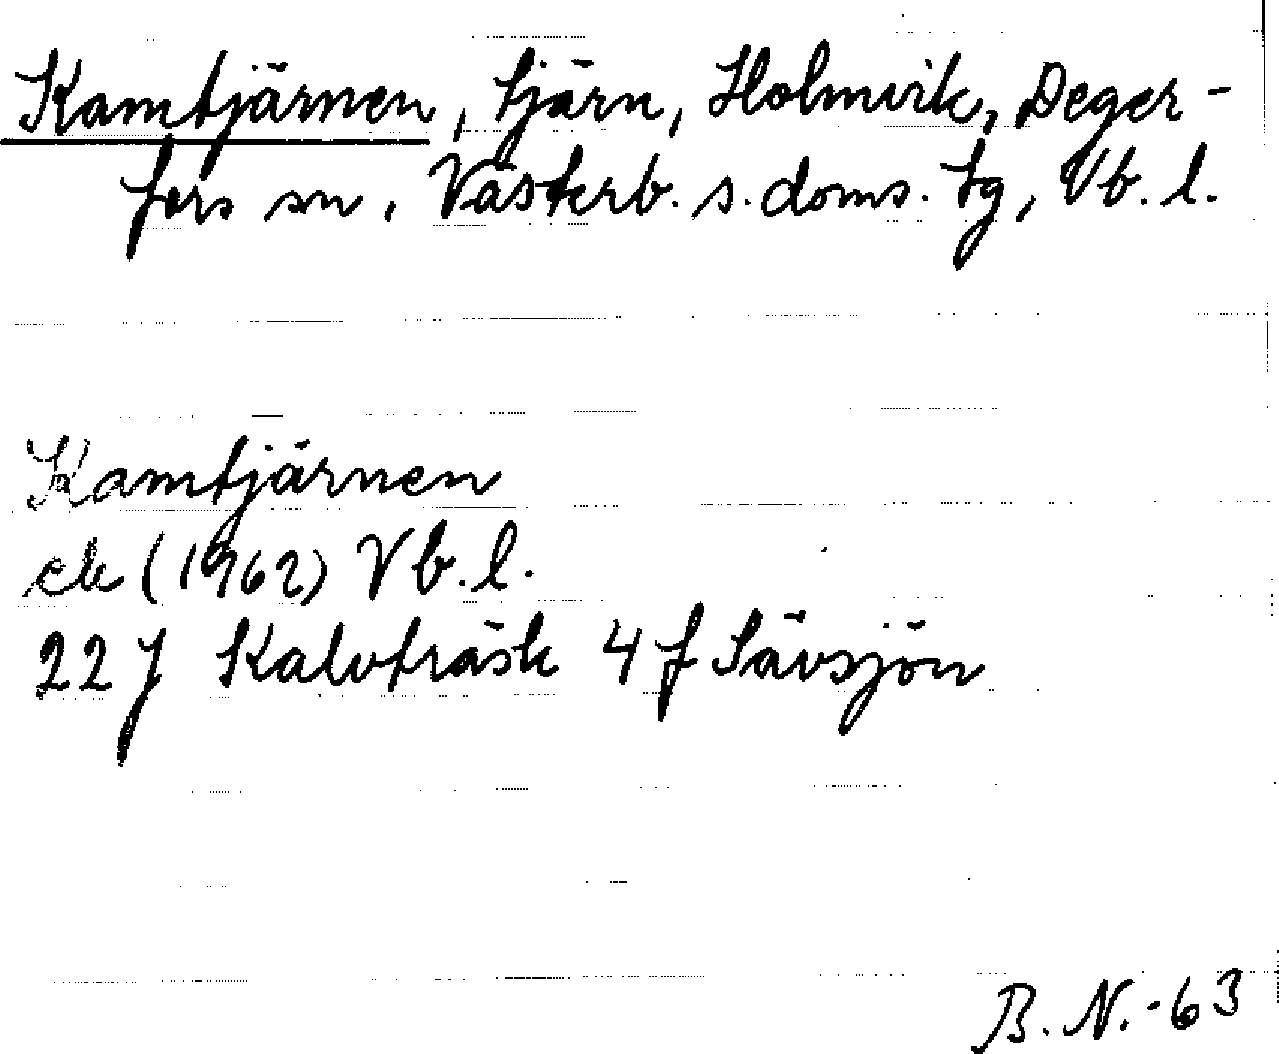 Kamtjärnen, tjärn, Holmvik, Deger-
fors sn, Västerb. s. doms. tg, Vb. l.
Kamtjärnen
ek (1962) Vb. l.
22 J Kalvträsk 4 f Sävsjön
B. N. -63